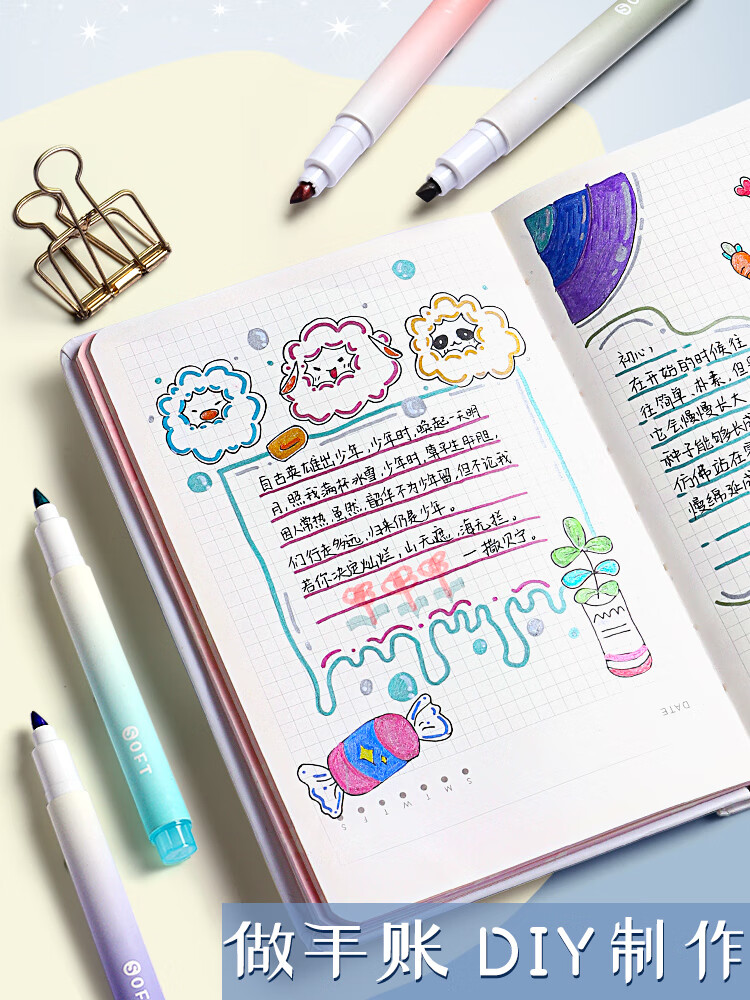 自古英雄出少年，少年时，唤起一天明
月，照我满怀冰雪，少年时，尊平生肝胆，
因人常热，虽然，韶华不为少年留，但不论我
们行走多远，归来仍是少年。
若你决定灿烂，山无遮，海无拦。
—撒贝宁。
初心，
在开始的时候往
往简单、朴素，但
它会慢慢长大
种子能够长成
仿佛站在零
慢绵延成
DATE
S M T W T F S
SOFT
SOFT
做手账 DIY制作